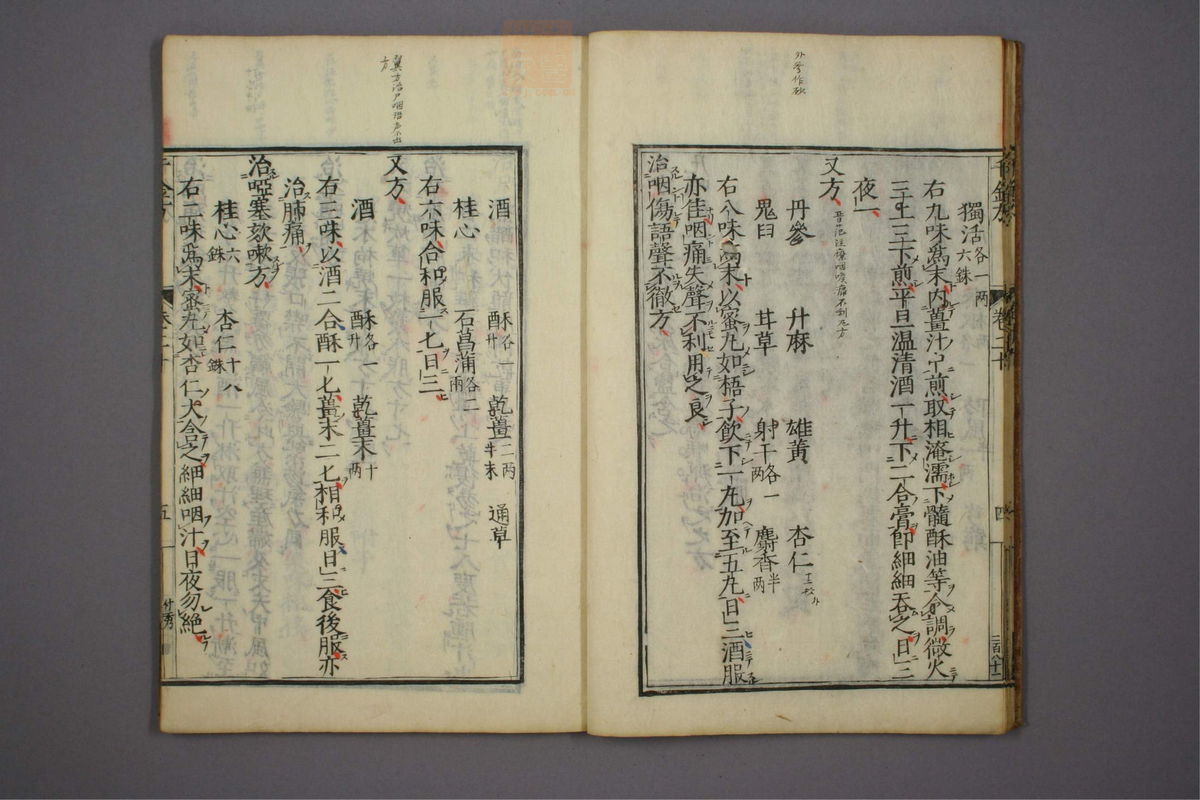 外臺作秋
獨活各一兩六銖
右九味爲末内薑汁中煎取相淹濡下髓酥油等令調微火
三上三下煎平旦温清酒一升下二合膏即細細吞之日三
夜一
又方
丹參 升麻 雄黄 杏仁
鬼臼 甘草 射干各一两 麝香半两
右八味爲末以蜜丸如梧子飲下一丸加至五丸日三酒服
亦佳咽痛失聲不利用之良
治咽傷語聲不徹方
千金方 卷二十 四
酒 酥各一升 乾薑二两半末 通草
桂心 石菖蒲各二兩
右六味合和服一七日三
又方
酒 酥各一升 乾薑末十两
右三味以酒二合酥一七薑末二七相和服日三食後服亦
治肺痛
治啞塞欬嗽方
桂心六銖 杏仁十八銖
右二味爲末蜜丸如杏仁大含之細細咽汁日夜勿絶
千金方 卷二十 五